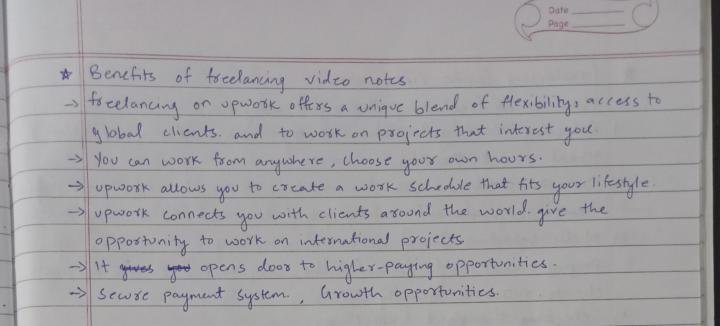 Date
Page
☆ Benefits of freelancing video notes
→ freelancing on upwork offers a unique blend of flexibility, access to
global clients. and to work on projects that interest you.
→ You can work from anywhere, choose your own hours.
→ upwork allows you to create a work schedule that fits your lifestyle.
→ upwork connects you with clients around the world. give the
opportunity to work on international projects
→ It gives you opens door to higher-paying opportunities.
→ Secure payment system., Growth opportunities.